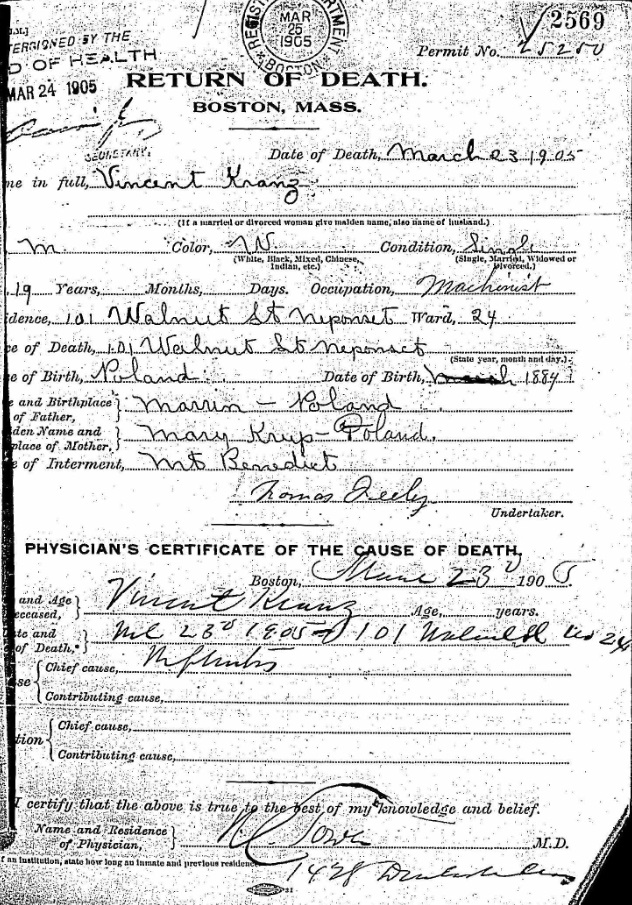 2569
MAR
25
1905
BOSTON
Permit No. 25250
BY THE
OF HEALTH
MAR 24 1905
RETURN OF DEATH.
BOSTON, MASS.
SECRETARY.
Date of Death, March 23 1905
me in full, Vincent Kranz
(If a married or divorced woman give maiden name, also name of husband.)
M Color, W Condition, Single
(White, Black, Mixed, Chinese, Indian, etc.) (Single, Married, Widowed or Divorced.)
19 Years, Months, Days. Occupation, Machinist
idence, 101 Walnut St Neponset Ward, 24
ce of Death, 101 Walnut St Neponset
(State year, month and day.)
ce of Birth, Poland Date of Birth, March 1884
e and Birthplace of Father, – Poland
den Name and place of Mother, Mary Krup – Poland.
e of Interment, Mt Benedict
Thomas
Undertaker.
PHYSICIAN'S CERTIFICATE OF THE CAUSE OF DEATH.
Boston, 23d 1905
and Age eceased, Vincent Kranz Age, years.
te and of Death,* 23d 1905 101 Walnut St 24
Chief cause, Nephritis
se
Contributing cause,
Chief cause,
tion
Contributing cause,
I certify that the above is true to the best of my knowledge and belief.
Name and Residence of Physician, M.D.
f an institution, state how long an inmate and previous residence